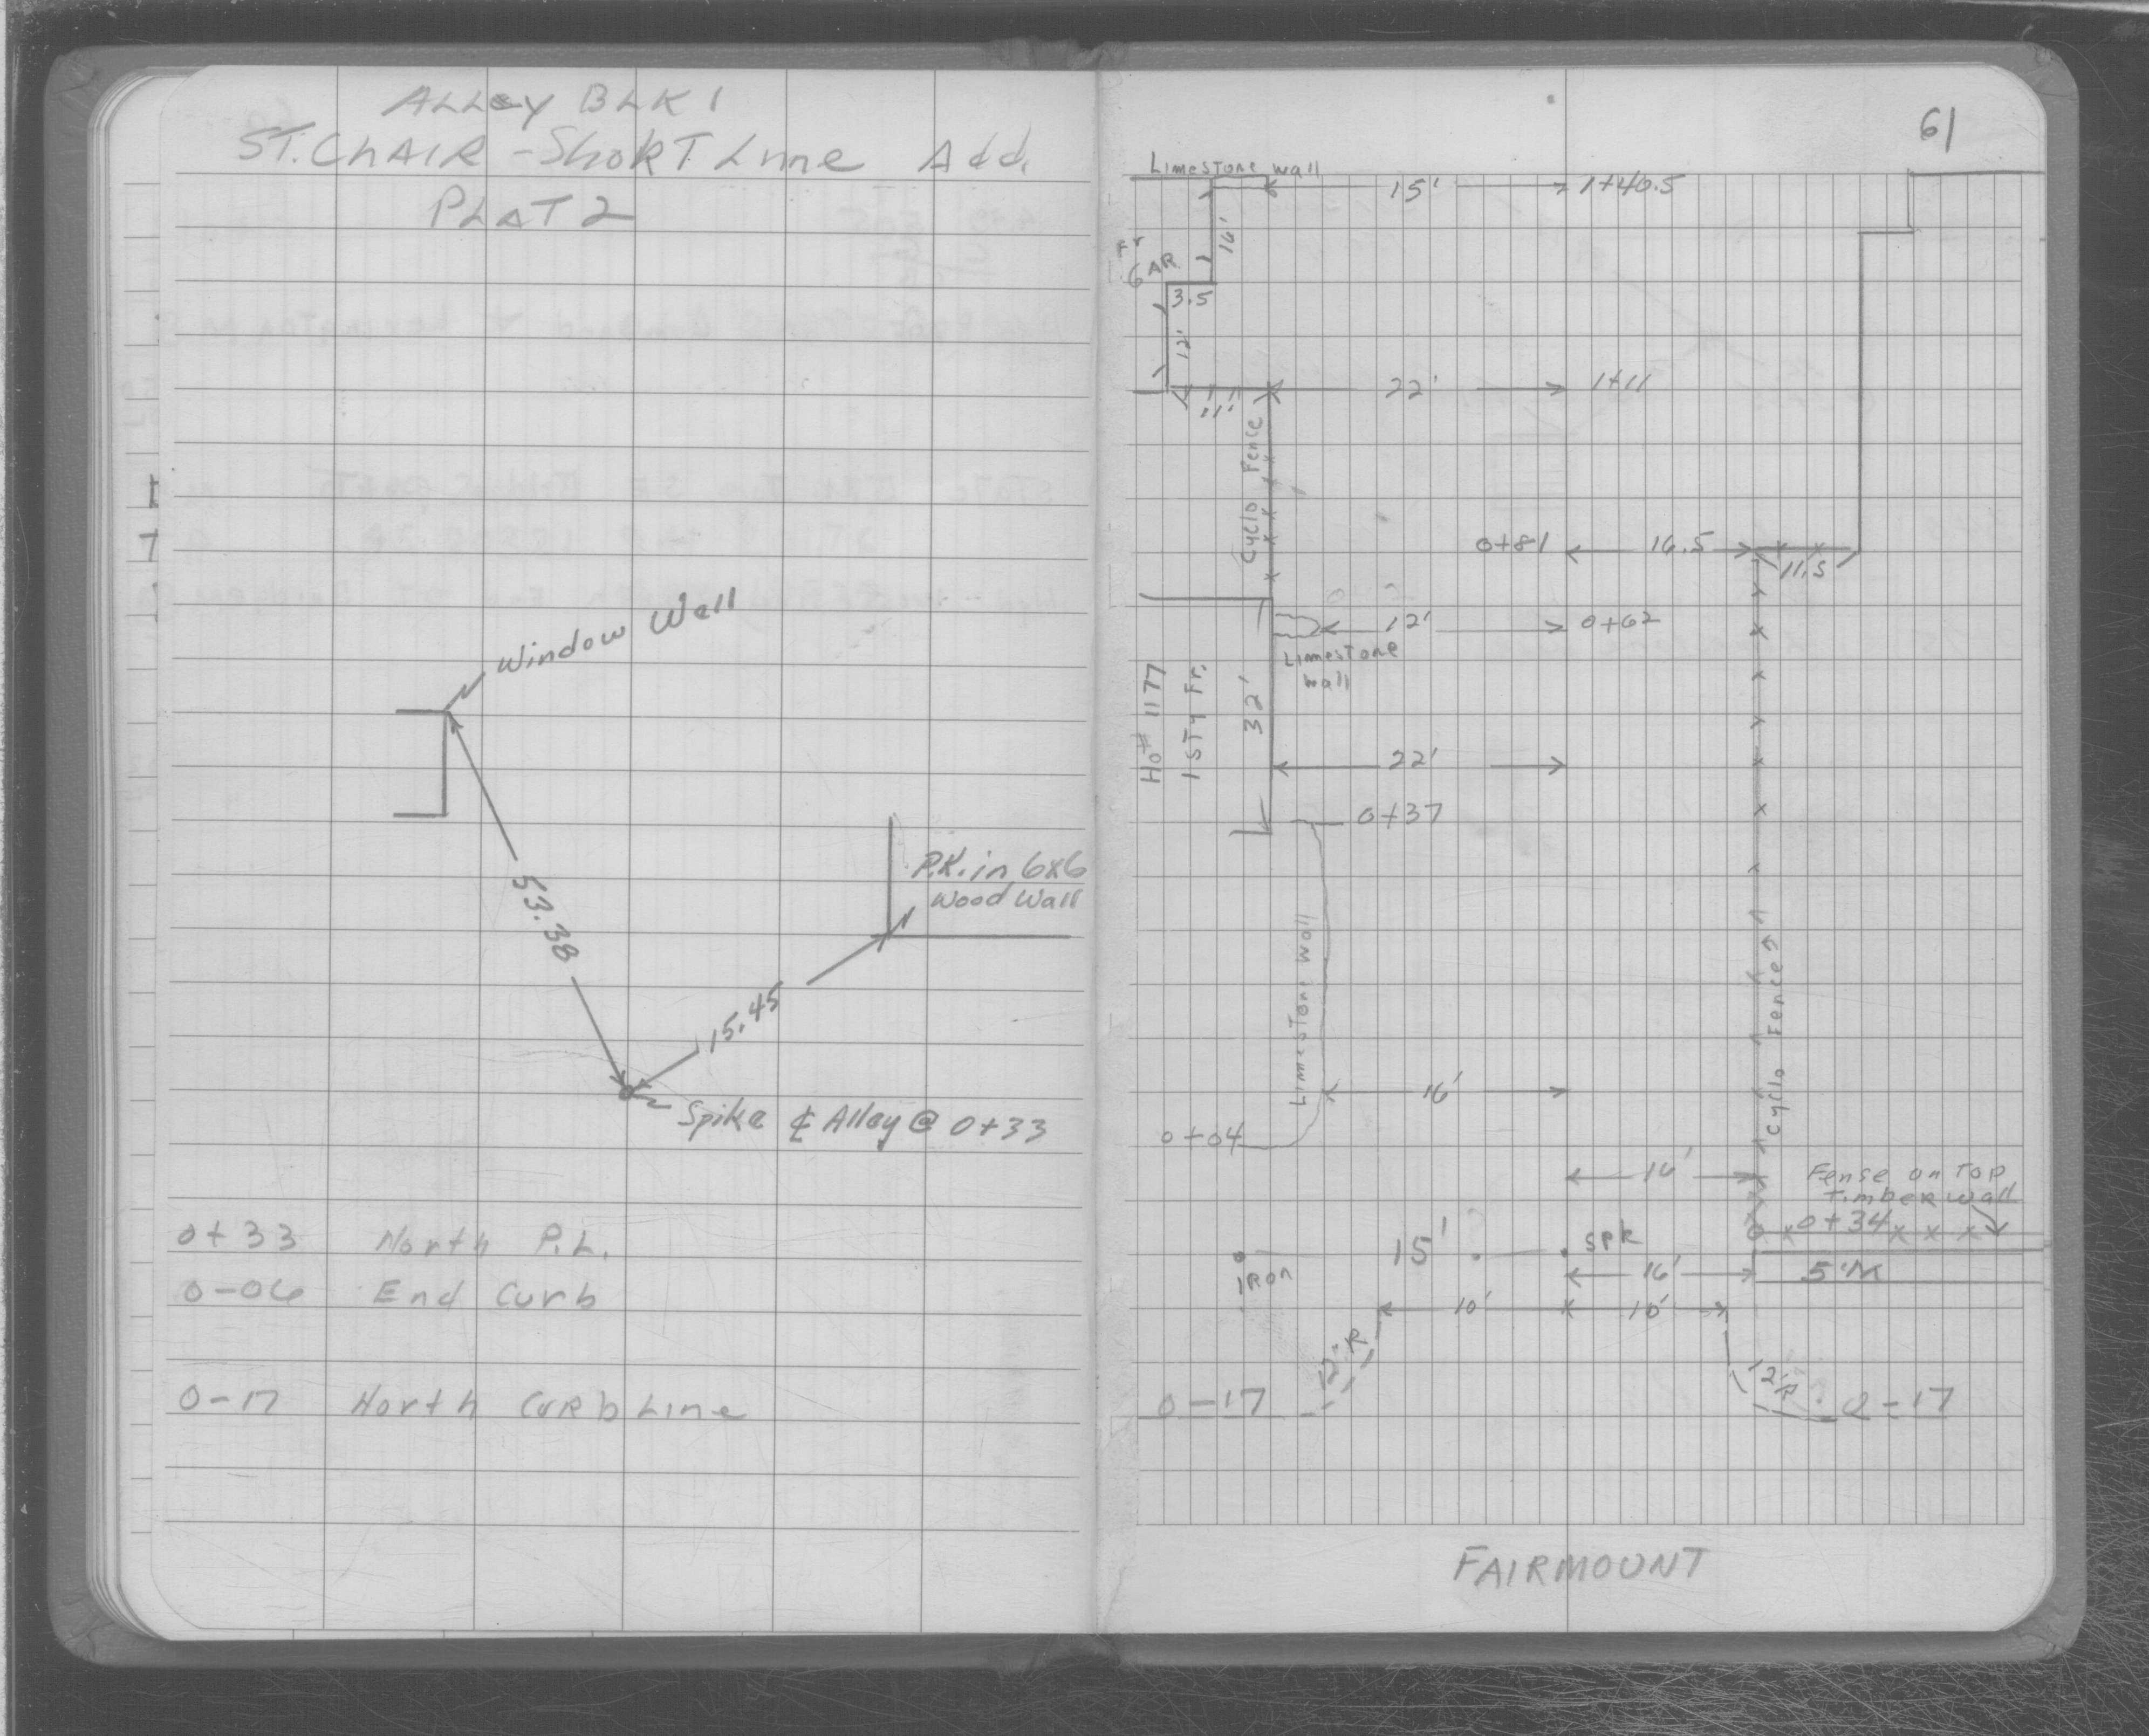 ALLey BLK 1
ST. ChAIR - ShORT Line Add.
PLAT 2
Window Well
53.38
P.K. in 6x6
Wood Wall
15.45
Spike ℄ Alley @ 0+33
0+33 North P.L.
0-06 End Curb
0-17 North CURb Line
61
LimesTone wall
15' 1+40.5
16'
Fr
GAR
3.5
12'
11'
22' 1+11
Cyclo Fence
0+81 16.5
11.5
12' 0+62
LimesTone
wall
Ho # 1177
1 STy Fr.
32'
22'
0+37
LimesTone wall
Cyclo Fence
16'
0+04
16'
Fense on Top
Timber wall
0+34
15' SPK
IRon
16'
10' 10'
12' R
12' R
0-17
0-17
FAIRMOUNT